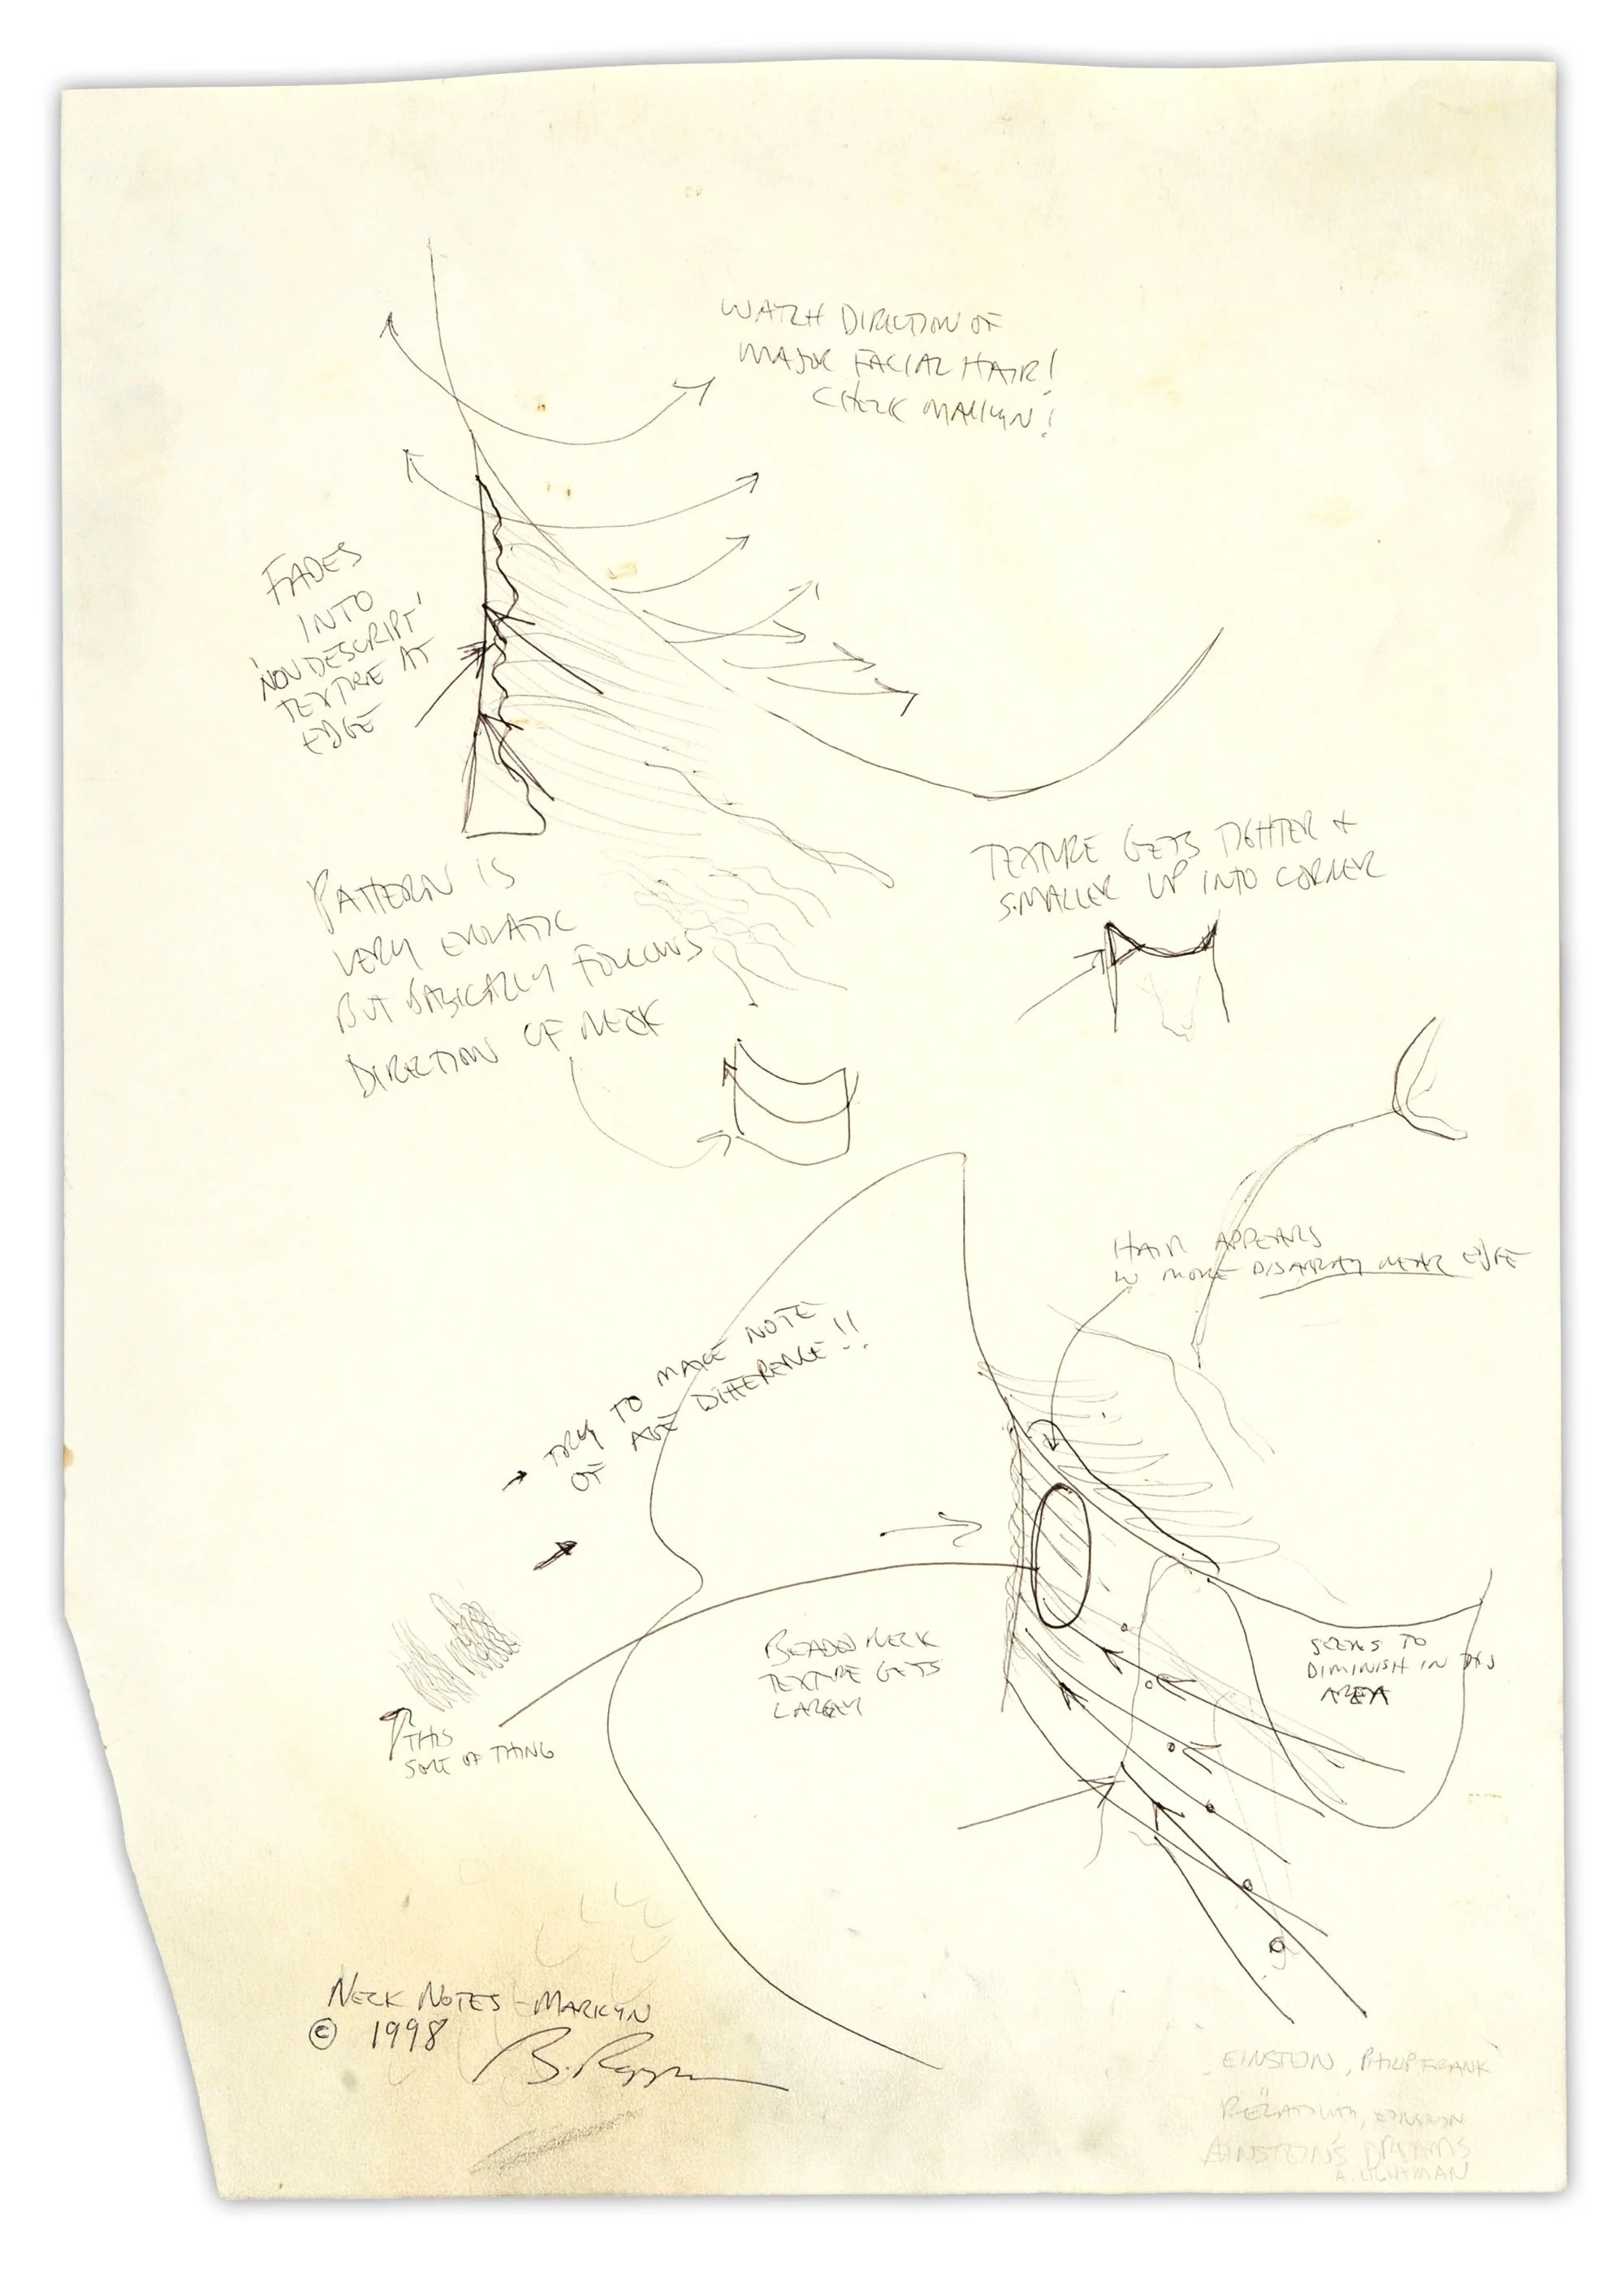 WATCH DIRECTION OF
MAJOR FACIAL HAIR!
CHECK MARILYN!
FADES
INTO
'NONDESCRIPT'
TEXTURE AT
EDGE
PATTERN IS
VERY ERRATIC
BUT BASICALLY FOLLOWS
DIRECTION OF NECK
TEXTURE GETS TIGHTER +
SMALLER UP INTO CORNER
HAIR APPEARS
IN MORE DISARRAY NEAR EDGE
TRY TO MAKE NOTE
OF AGE DIFFERENCE!!
BEADED NECK
TEXTURE GETS
LARGER
SEEMS TO
DIMINISH IN THIS
AREA
THIS
SORT OF THING
NECK NOTES - MARILYN
© 1998
EINSTEIN, PHILIP FRANK
RELATIVITY, EINSTEIN
EINSTEIN'S DREAMS
A. LIGHTMAN